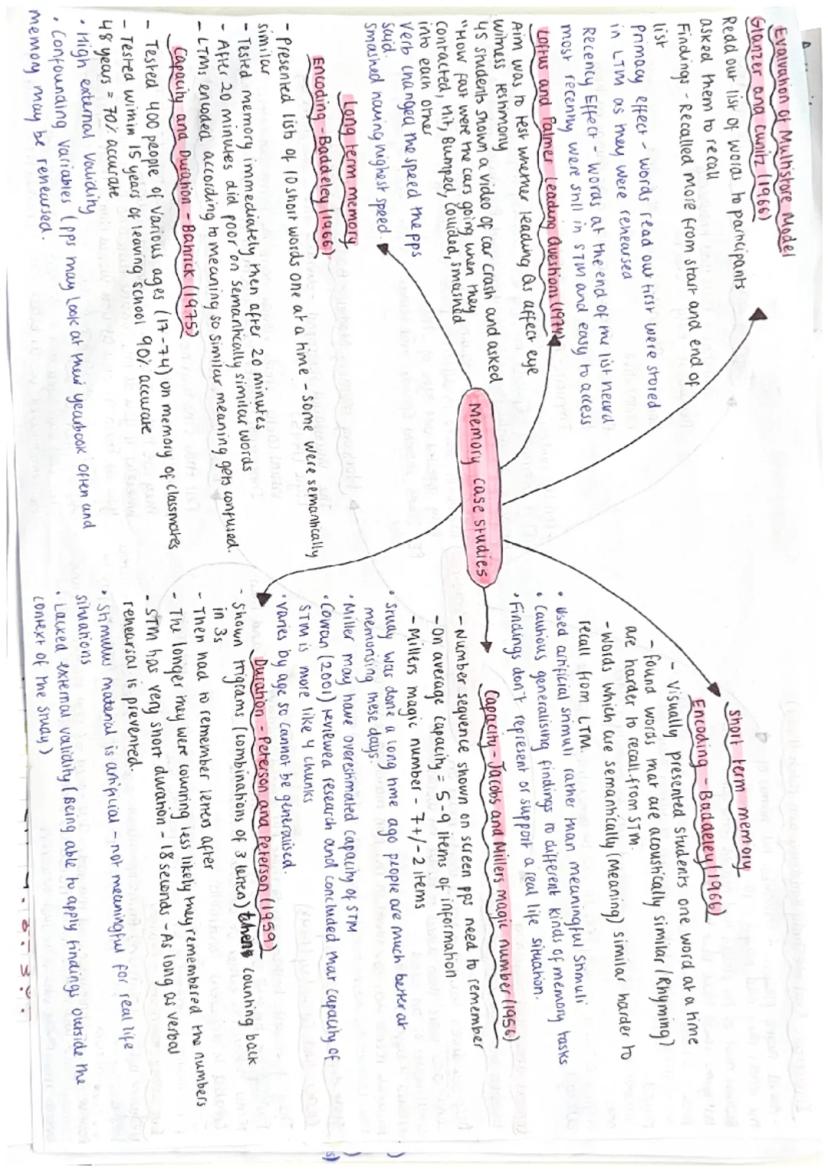 Evaluation of Multistore Model
Glanzer and Cunitz (1966)
Read out list of words to participants
asked them to recall
Findings - Recalled more from start and end of
list
Primacy effect - words read out first were stored
in LTM as they were rehearsed
Recency Effect - Words at the end of the list heard
most recently were still in STM and easy to access
Loftus and Palmer Leading Questions (1974)
Aim was to test whether leading Qs affect eye
witness testimony
45 students shown a video of car crash and asked
"How fast were the cars going when they
contacted, hit, Bumped, Collided, smashed
into each other
Verb changed the speed the pps
said.
smashed having highest speed
Long term memory
Encoding - Baddeley (1966)
- Presented list of 10 short words one at a time - some were semantically
similar
- Tested memory immediately, then after 20 minutes
- After 20 minutes did poor on semantically similar words
- LTMs encoded according to meaning so similar meaning gets confused.
Capacity and Duration - Bahrick (1975)
- Tested 400 people of various ages (17-74) on memory of classmates
- Tested within 15 years of leaving school 90% accurate
48 years = 70% accurate
• High external validity
• Confounding variables (pps may look at their yearbook often and
memory may be rehearsed.
Memory case studies
Short term memory
Encoding - Baddeley (1966)
- Visually presented students one word at a time
- found words that are acoustically similar (Rhyming)
are harder to recall from STM.
- words which are semantically (Meaning) similar harder to
recall from LTM.
• Used artificial stimuli rather than meaningful stimuli
• Cautious generalising findings to different kinds of memory tasks
• Findings don't represent or support a real life situation.
Capacity - Jacobs and Millers magic number (1956)
- Number sequence shown on screen pps need to remember
- On average capacity = 5-9 items of information
- Millers magic number - 7+/-2 items
• Study was done a long time ago people are much better at
memorising these days.
• Miller may have overestimated capacity of STM
• Cowan (2001) reviewed research and concluded that capacity of
STM is more like 4 chunks
• Varies by age so cannot be generalised.
Duration - Peterson and Peterson (1959)
- Shown trigrams (combinations of 3 letters) counting back
in 3s
- Then had to remember letters after
- The longer they were counting less likely they remembered the numbers
- STM has very short duration - 18 seconds - As long as verbal
rehearsal is prevented
• Stimulus material is artificial - not meaningful for real life
situations
• Lacked external validity (Being able to apply findings outside the
context of the study)